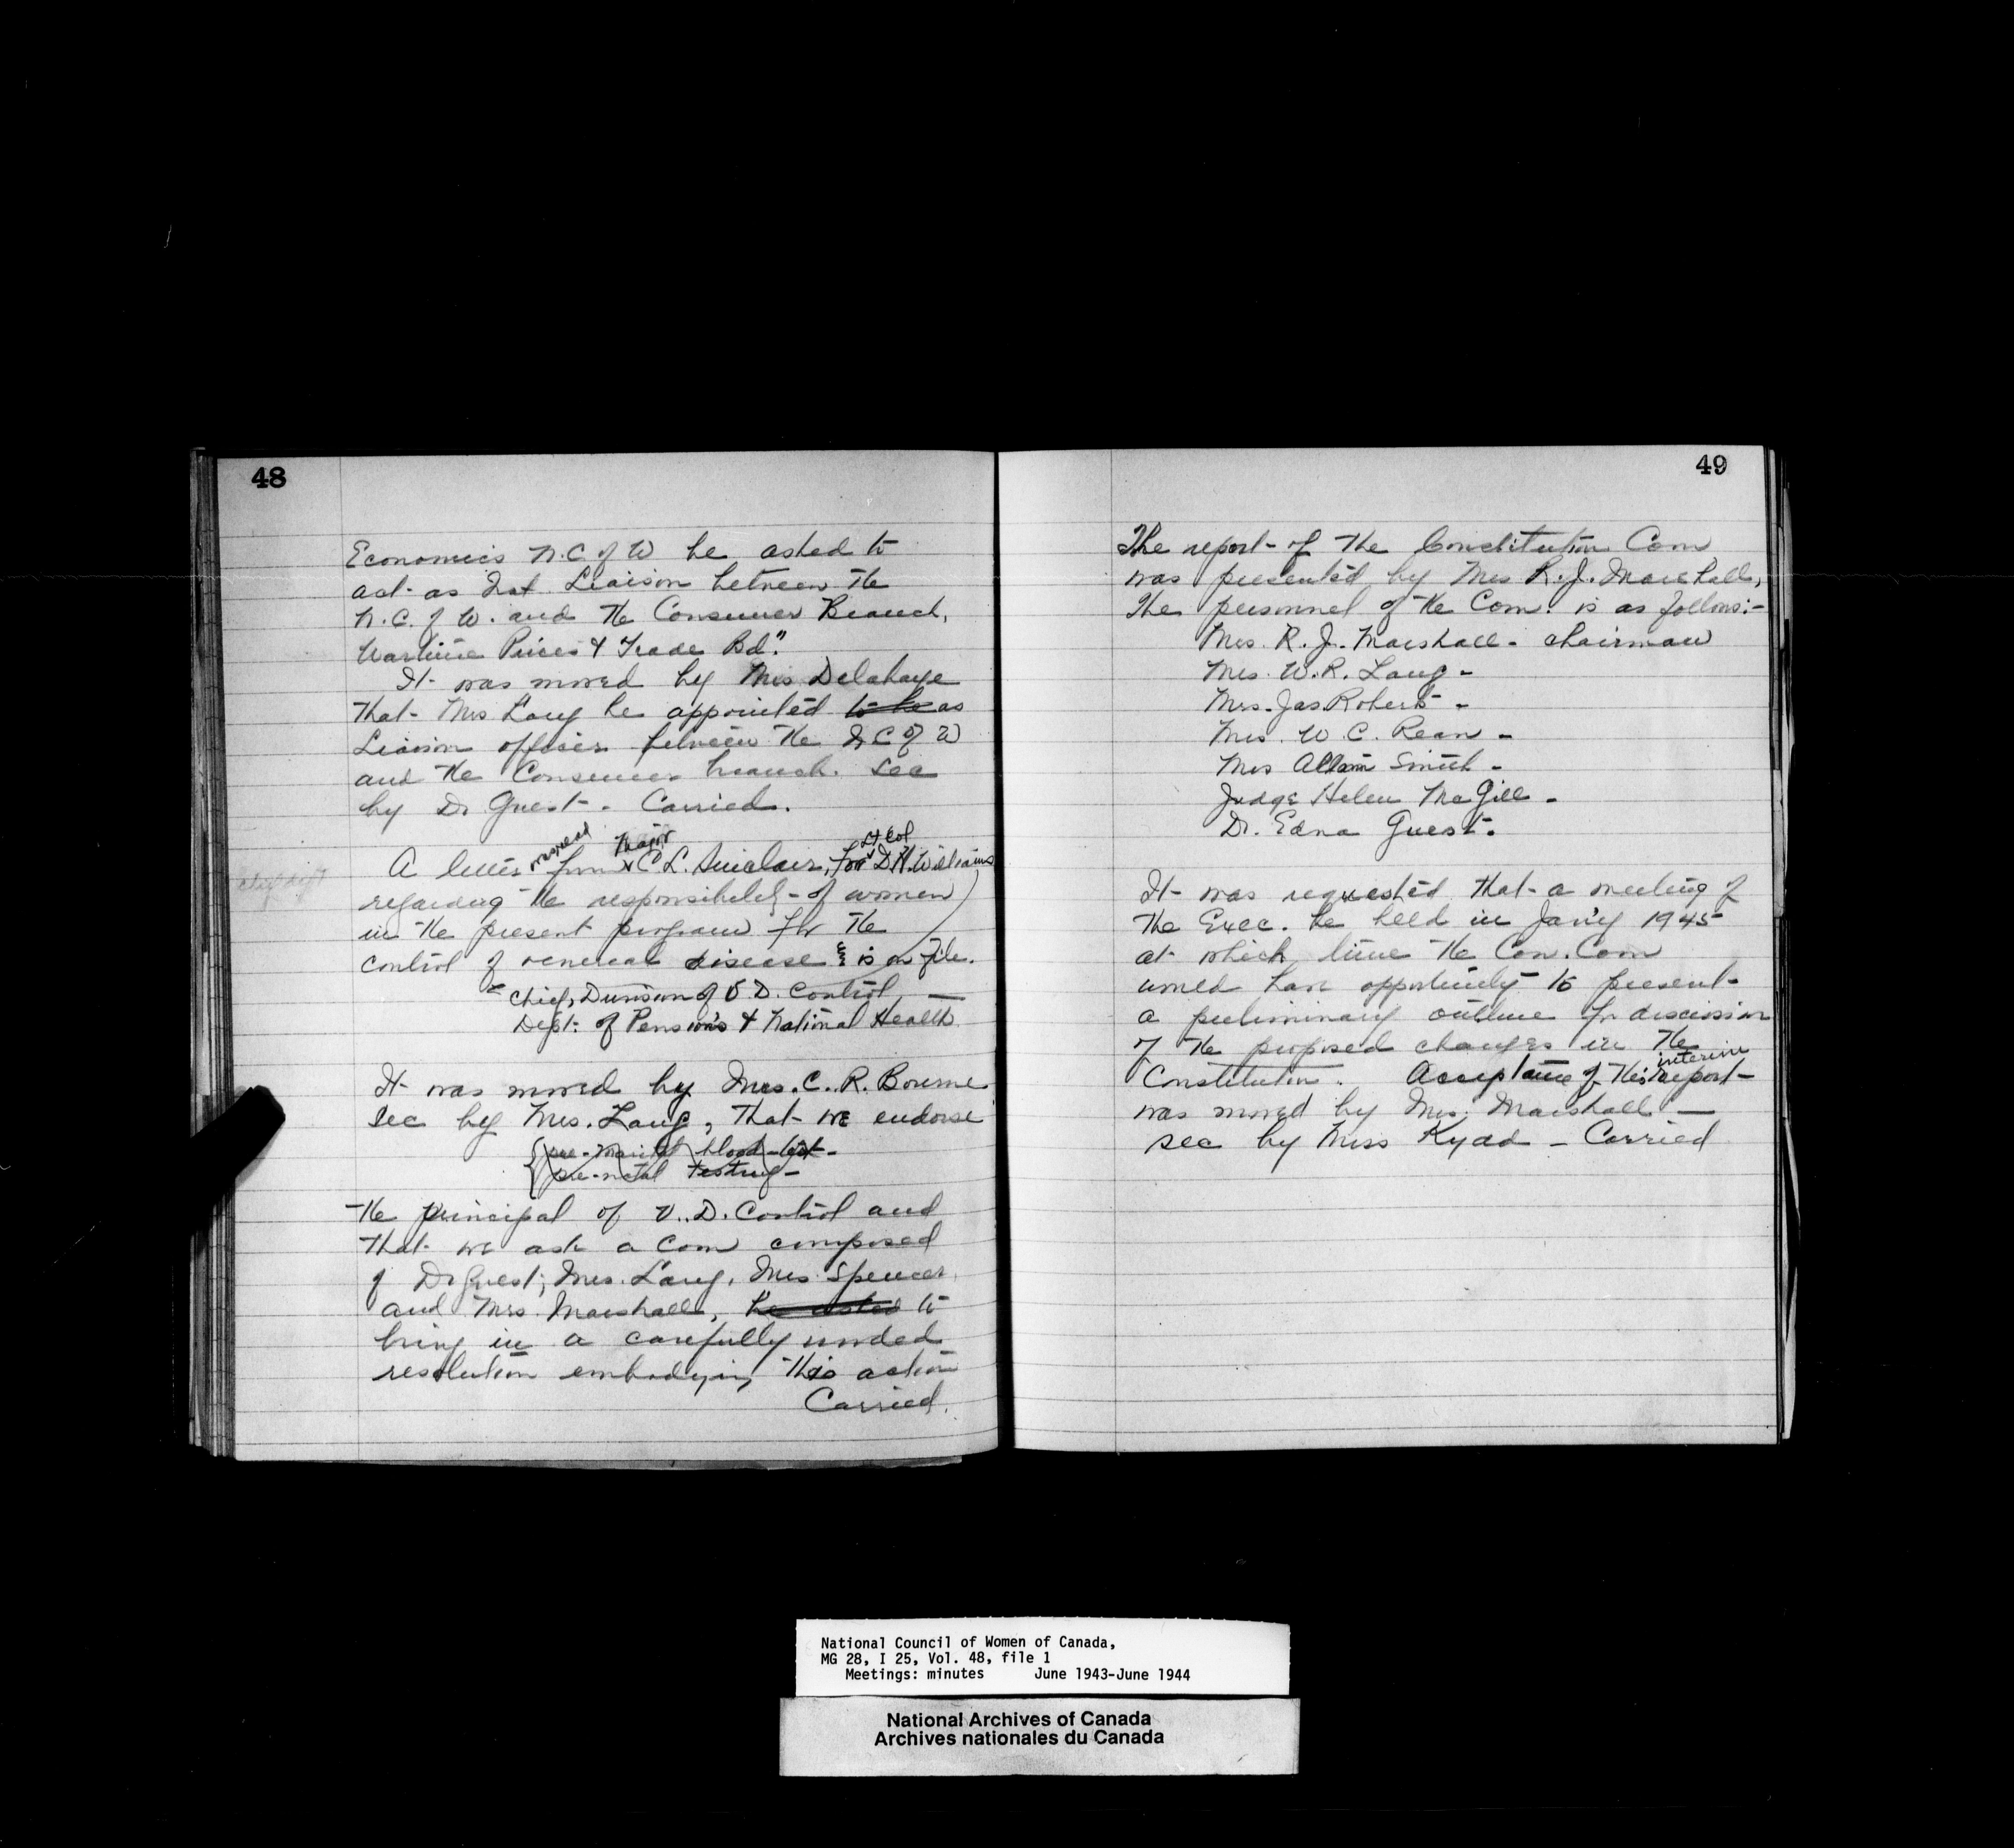 48
Economics N.C. of W be asked to
act as Nat. Liaison between the
N.C. of W. and the Consumer Branch,
Wartime Prices & Trade Bd."
It was moved by Mrs Delahaye
that Mrs Lang be appointed to be as
Liaison officer between the N C of W
and the Consumer branch. Sec
by Dr Guest - Carried.
was read Major Lt Col
A letter from C. L. Sinclair, for D.H. Williams
regarding the responsibility of women
in the present program for the
control of venereal disease & is on file.
Chief, Division of V D. Control,
Dept. of Pensions & National Health
It was moved by Mrs. C. R. Bourne
Sec by Mrs. Lang, that we endorse
pre-marital blood-test-
pre-natal testing-
the principal of V.D. Control and
that we ask a Com composed
of Dr Guest, Mrs. Lang, Mrs Spencer
and Mrs. Marshall, be asked to
bring in a carefully worded
resolution embodying this action
Carried.
49
The report of the Constitution Com
was presented by Mrs R. J. Marshall,
The personnel of the Com. is as follows:-
Mrs. R. J. Marshall - Chairman
Mrs. W. R. Lang -
Mrs. Jas. Roberts -
Mrs. W. C. Rean -
Mrs Allain Smith -
Judge Helen McGill -
Dr. Edna Guest.
It was requested that a meeting of
the Exec. be held in Jan'y 1945
at which time the Con. Com
would have opportunity to present
a preliminary outline for discussion
of the proposed changes in the
interim
Constitution. Acceptance of this report
was moved by Mrs. Marshall -
sec by Miss Kydd - Carried
National Council of Women of Canada,
MG 28, I 25, Vol. 48, file 1
Meetings: minutes June 1943-June 1944
National Archives of Canada
Archives nationales du Canada